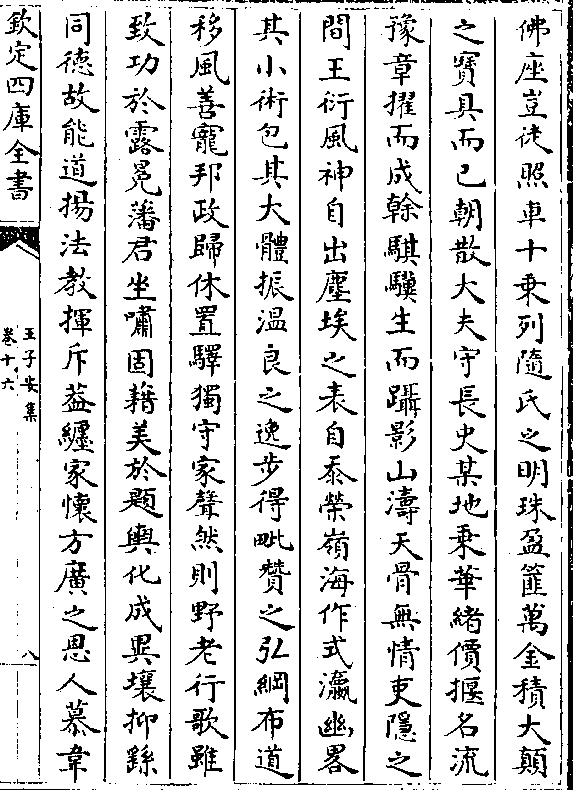 佛座豈徒照車十乗列隨氏之明珠盈篚萬金積大顛
之寶具而已朝散大夫守長史某地乗華緒價握名流
豫章擢而成榦騏驥生而躡影山濤天骨無情吏隱之
間王衍風神自出塵埃之表自忝榮嶺海作式瀛幽畧
其小術包其大體振温良之逸步得毗贊之弘綱布道
移風善寵邦政歸休置驛獨守家聲然則野老行歌雖
致功於露冕藩君坐嘯固藉美於題輿化成異壤抑繇
同徳故能道揚法教揮斥葢纒家懐方廣之恩人慕韋
欽定四庫全書
王子安集
卷十六
八